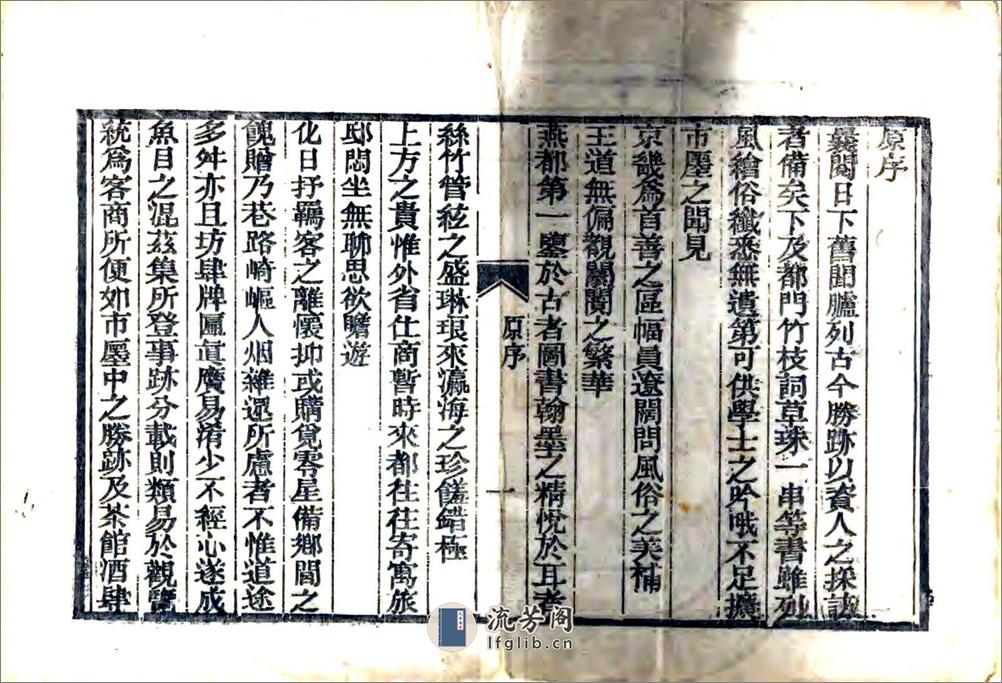 原序
曩閱日下舊聞臚列古今勝跡以資人之採訪
者備矣下及都門竹枝詞草珠一串等書雖列
風繪俗纖悉無遺第可供學士之吟哦不足擴
市廛之聞見
京畿為首善之區幅員遼闊問風俗之美補
王道無偏觀闤闠之繁華
燕都第一鑒於古者圖書翰墨之精悅於耳者
原序
一
絲竹管絃之盛琳琅來瀛海之珍饈錯極
上方之貴惟外省仕商暫時來都往往寄寓旅
邸悶坐無聊思欲瞻遊
化日抒羈客之離懷抑或購覓零星備鄉閭之
餽贈乃巷路崎嶇人烟雜遝所慮者不惟道途
多舛亦且坊肆牌匾真贗易淆少不經心遂成
魚目之混茲集所登事跡分載則類易於觀覽
統為客商所便如市廛中之勝跡及茶館酒肆
流芳阁
lfglib.cn